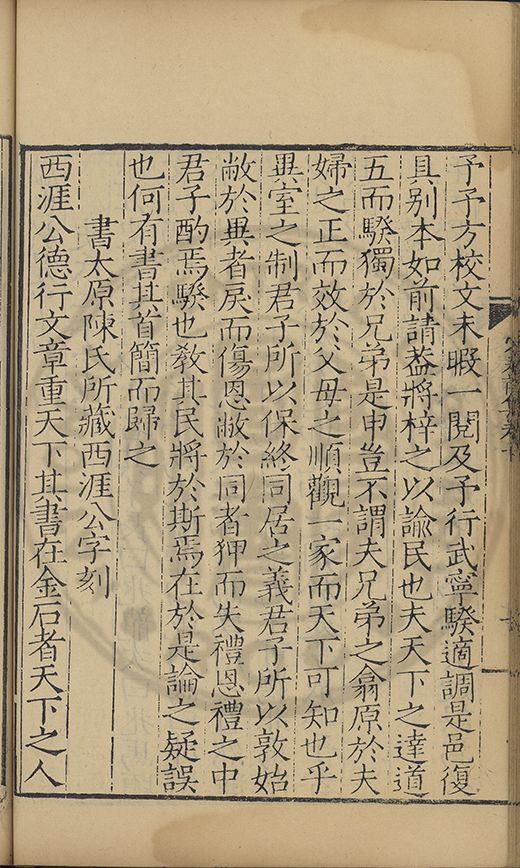 予予方校文未暇一閱及予行武寧騤適調是邑復
具别本如前請葢將梓之以諭民也夫天下之達道
五而騤獨於兄弟是申豈不謂夫兄弟之翕原於夫
婦之正而效於父母之順觀一家而天下可知也乎
異室之制君子所以保終同居之義君子所以敦始
敝於異者戾而傷恩敝於同者狎而失禮恩禮之中
君子酌焉騤也教其民將於斯焉在於是論之疑誤
也何有書其首簡而歸之
書太原陳氏所藏西涯公字刻
西涯公德行文章重天下其書在金石者天下之人